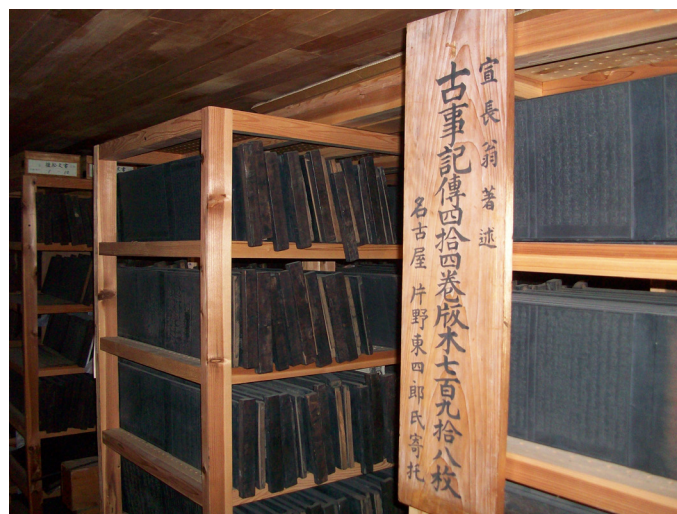 宣長翁著述
古事記傳四拾四巻版木七百九拾八枚
名古屋 片野東四郎氏寄托